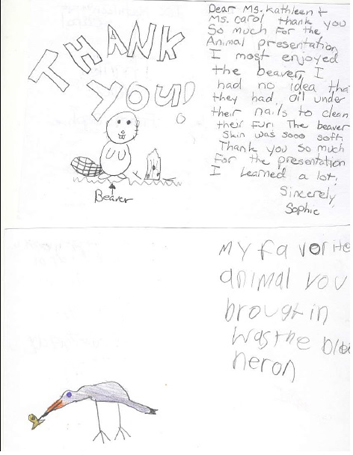 THANK
YOU!
Beaver
Dear Ms. Kathleen &
Ms. Carol thank you
So much for the
Animal presentation
I most enjoyed
the beaver, I
had no idea that
they had oil under
their nails to clean
their fur. The beaver
Skin was sooo soft.
Thank you so much
for the presentation
I learned a lot.
Sincerely
Sophie
my favorite
animal you
brought in
was the blue
heron